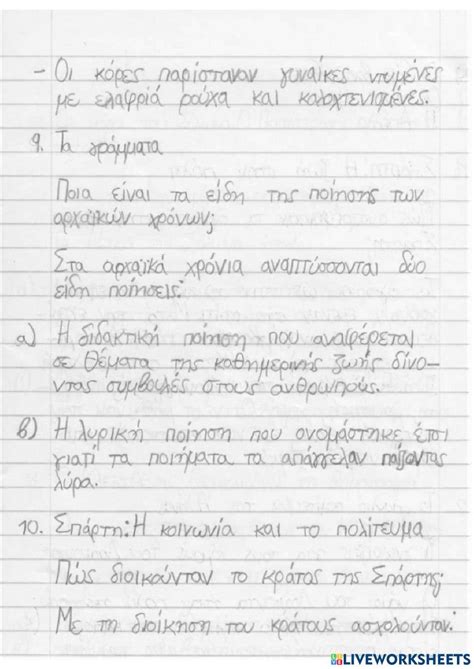 - Οι κόρες παρίσταναν γυναίκες ντυμένες
με ελαφριά ρούχα και καλοχτενισμένες.
9. Τα γράμματα
Ποια είναι τα είδη της ποίησης των
αρχαϊκών χρόνων;
Στα αρχαϊκά χρόνια αναπτύσσονται δύο
είδη ποίησεις:
α) Η διδακτική ποίηση που αναφέρεται
σε θέματα της καθημερινής ζωής δίνο-
ντας συμβουλές στους ανθρώπους.
β) Η λυρική ποίηση που ονομάστηκε έτσι
γιατί τα ποιήματα τα απάγγελαν παίζοντας
λύρα.
10. Σπάρτη: Η κοινωνία και το πολίτευμα
Πώς διοικούνταν το κράτος της Σπάρτης;
Με τη διοίκηση του κράτους ασχολούνταν:
LIVEWORKSHEETS